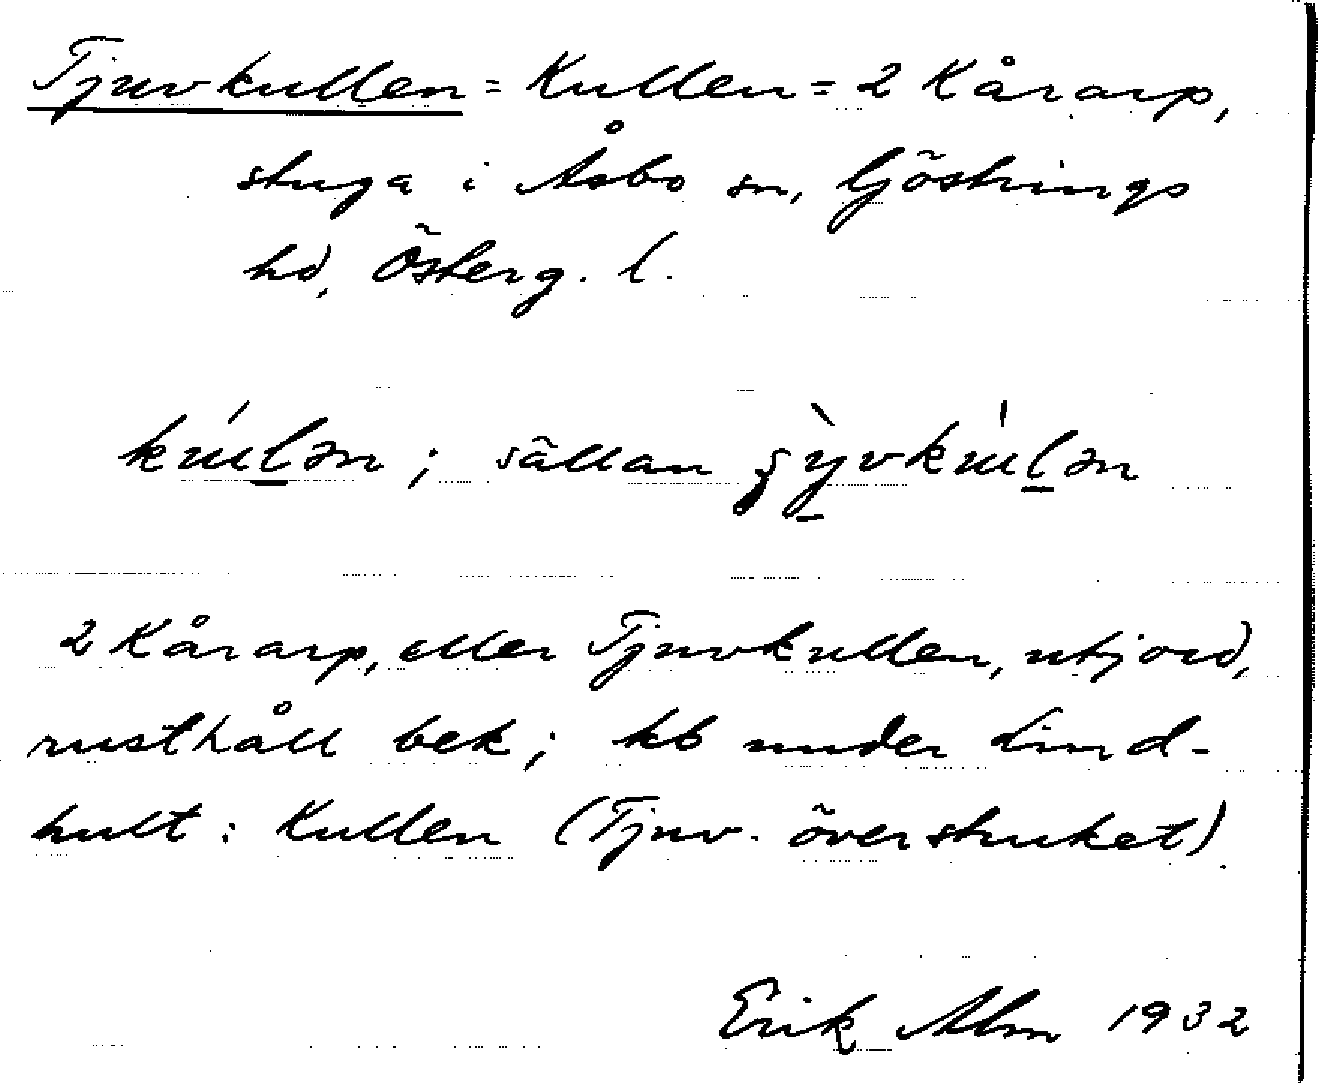 Tjuvkullen = Kullen = 2 Kårarp,
stuga i Åsbo sn, Göstrings
hd, Österg. l.
; sällan
2 Kårarp, eller Tjuvkullen, utjord,
rusthåll bek; kb under Lind-
hult: Kullen (Tjuv- överstruket)
Erik Alm 1932